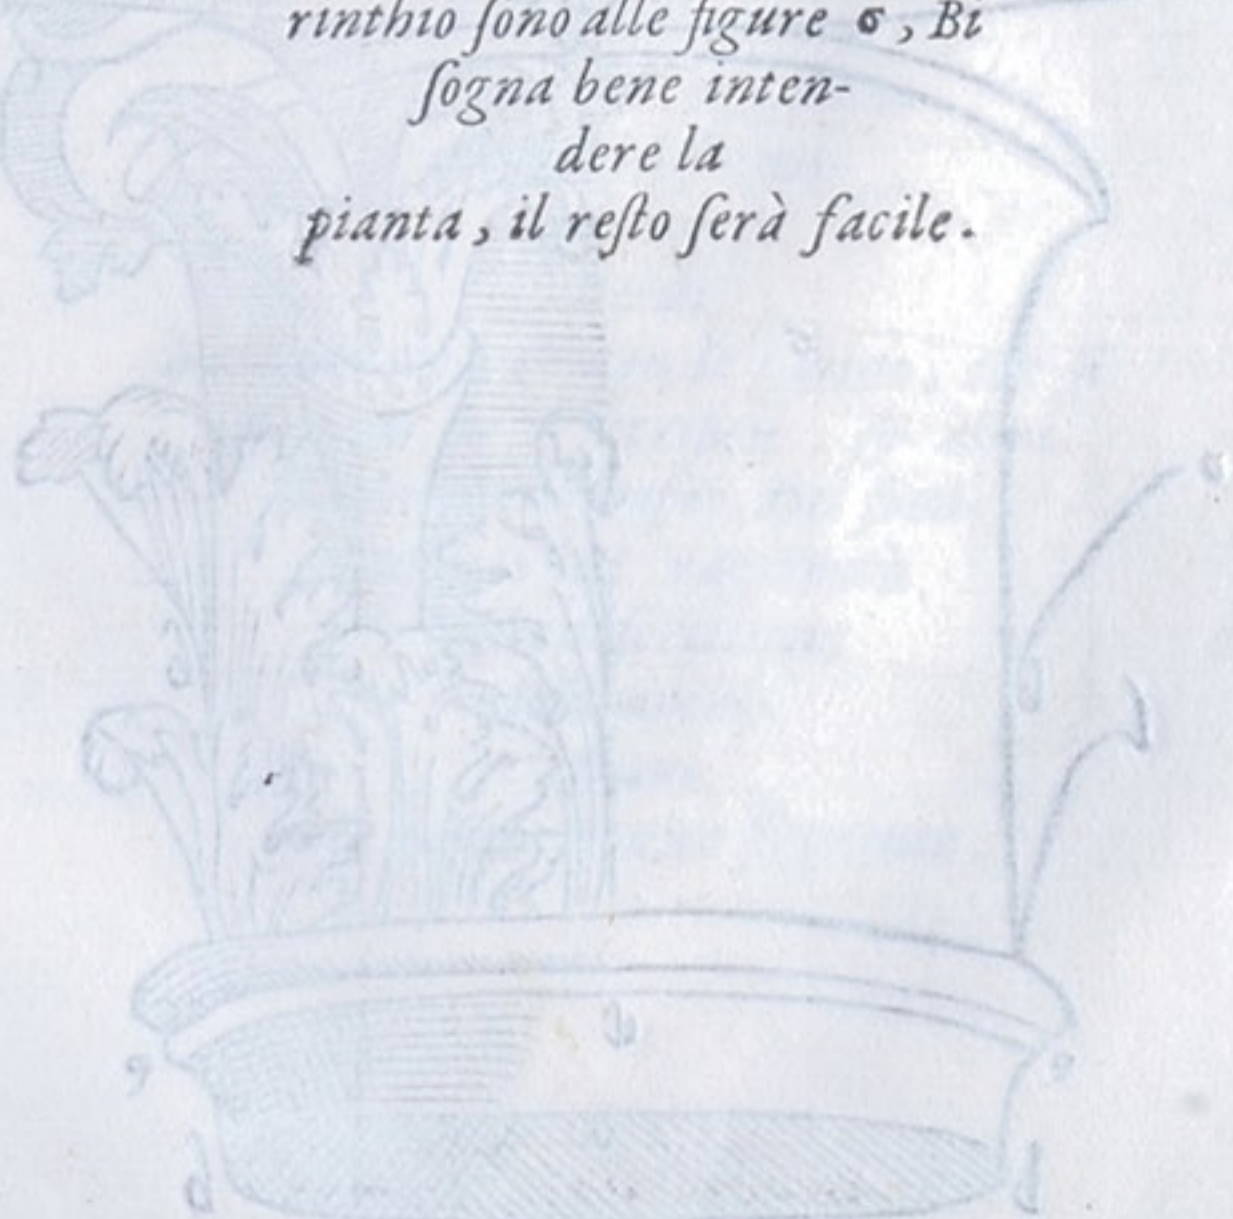 rinthio ſono alle figure σ, Bi
ſogna bene inten-
dere la
pianta, il reſto ſerà facile.